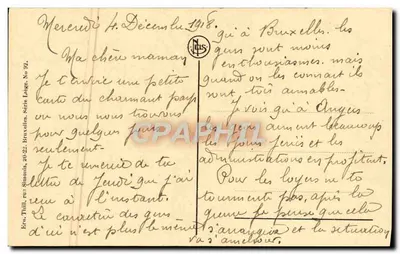 Mercredi 4 Décembre 1918.
Ma chère maman
Je t'envoie une petite
carte du charmant pays
ou nous nous trouvons
pour quelques jours
seulement.
Je te remercie de ta
lettre de Jeudi que j'ai
reçu à l'instant.
Le caractère des gens
d'ici n'est plus le même
qu'à Bruxelles. les
gens sont moins
enthousiasmés. mais
quand on les connait ils
sont très aimables.
Je vois qu'à Angers
les gens aiment beaucoup
les jours fériés et les
administrations en profitent.
Pour les loyers ne te
tourmente pas, après la
guerre je pense que cela
s'arrangera et la situation
va s'améliorer.
Ern. Thill, rue Simonis, 20-22, Bruxelles. Série Liége, No 92.